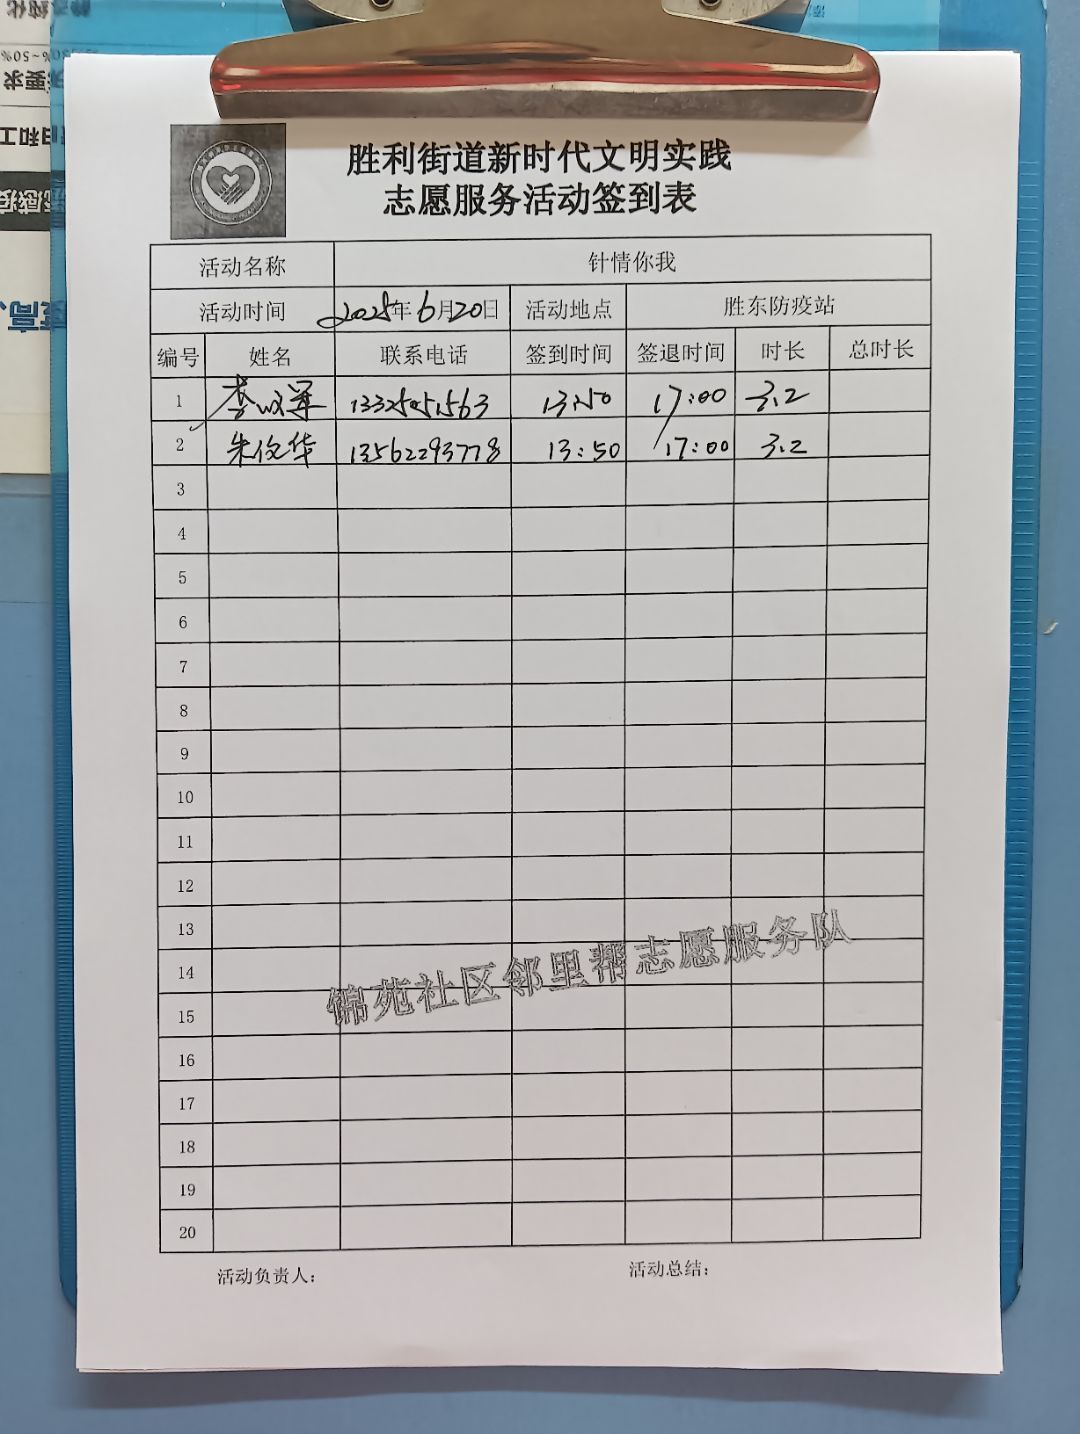 胜利街道新时代文明实践
志愿服务活动签到表
活动名称 针情你我
活动时间 2025年6月20日 活动地点 胜东防疫站
编号 姓名 联系电话 签到时间 签退时间 时长 总时长
1 李 13325051563 13:50 17:00 3.2
2 朱俊华 13562293778 13:50 17:00 3.2
3
4
5
6
7
8
9
10
11
12
13
14
15
16
17
18
19
20
锦苑社区邻里帮志愿服务队
活动负责人: 活动总结: